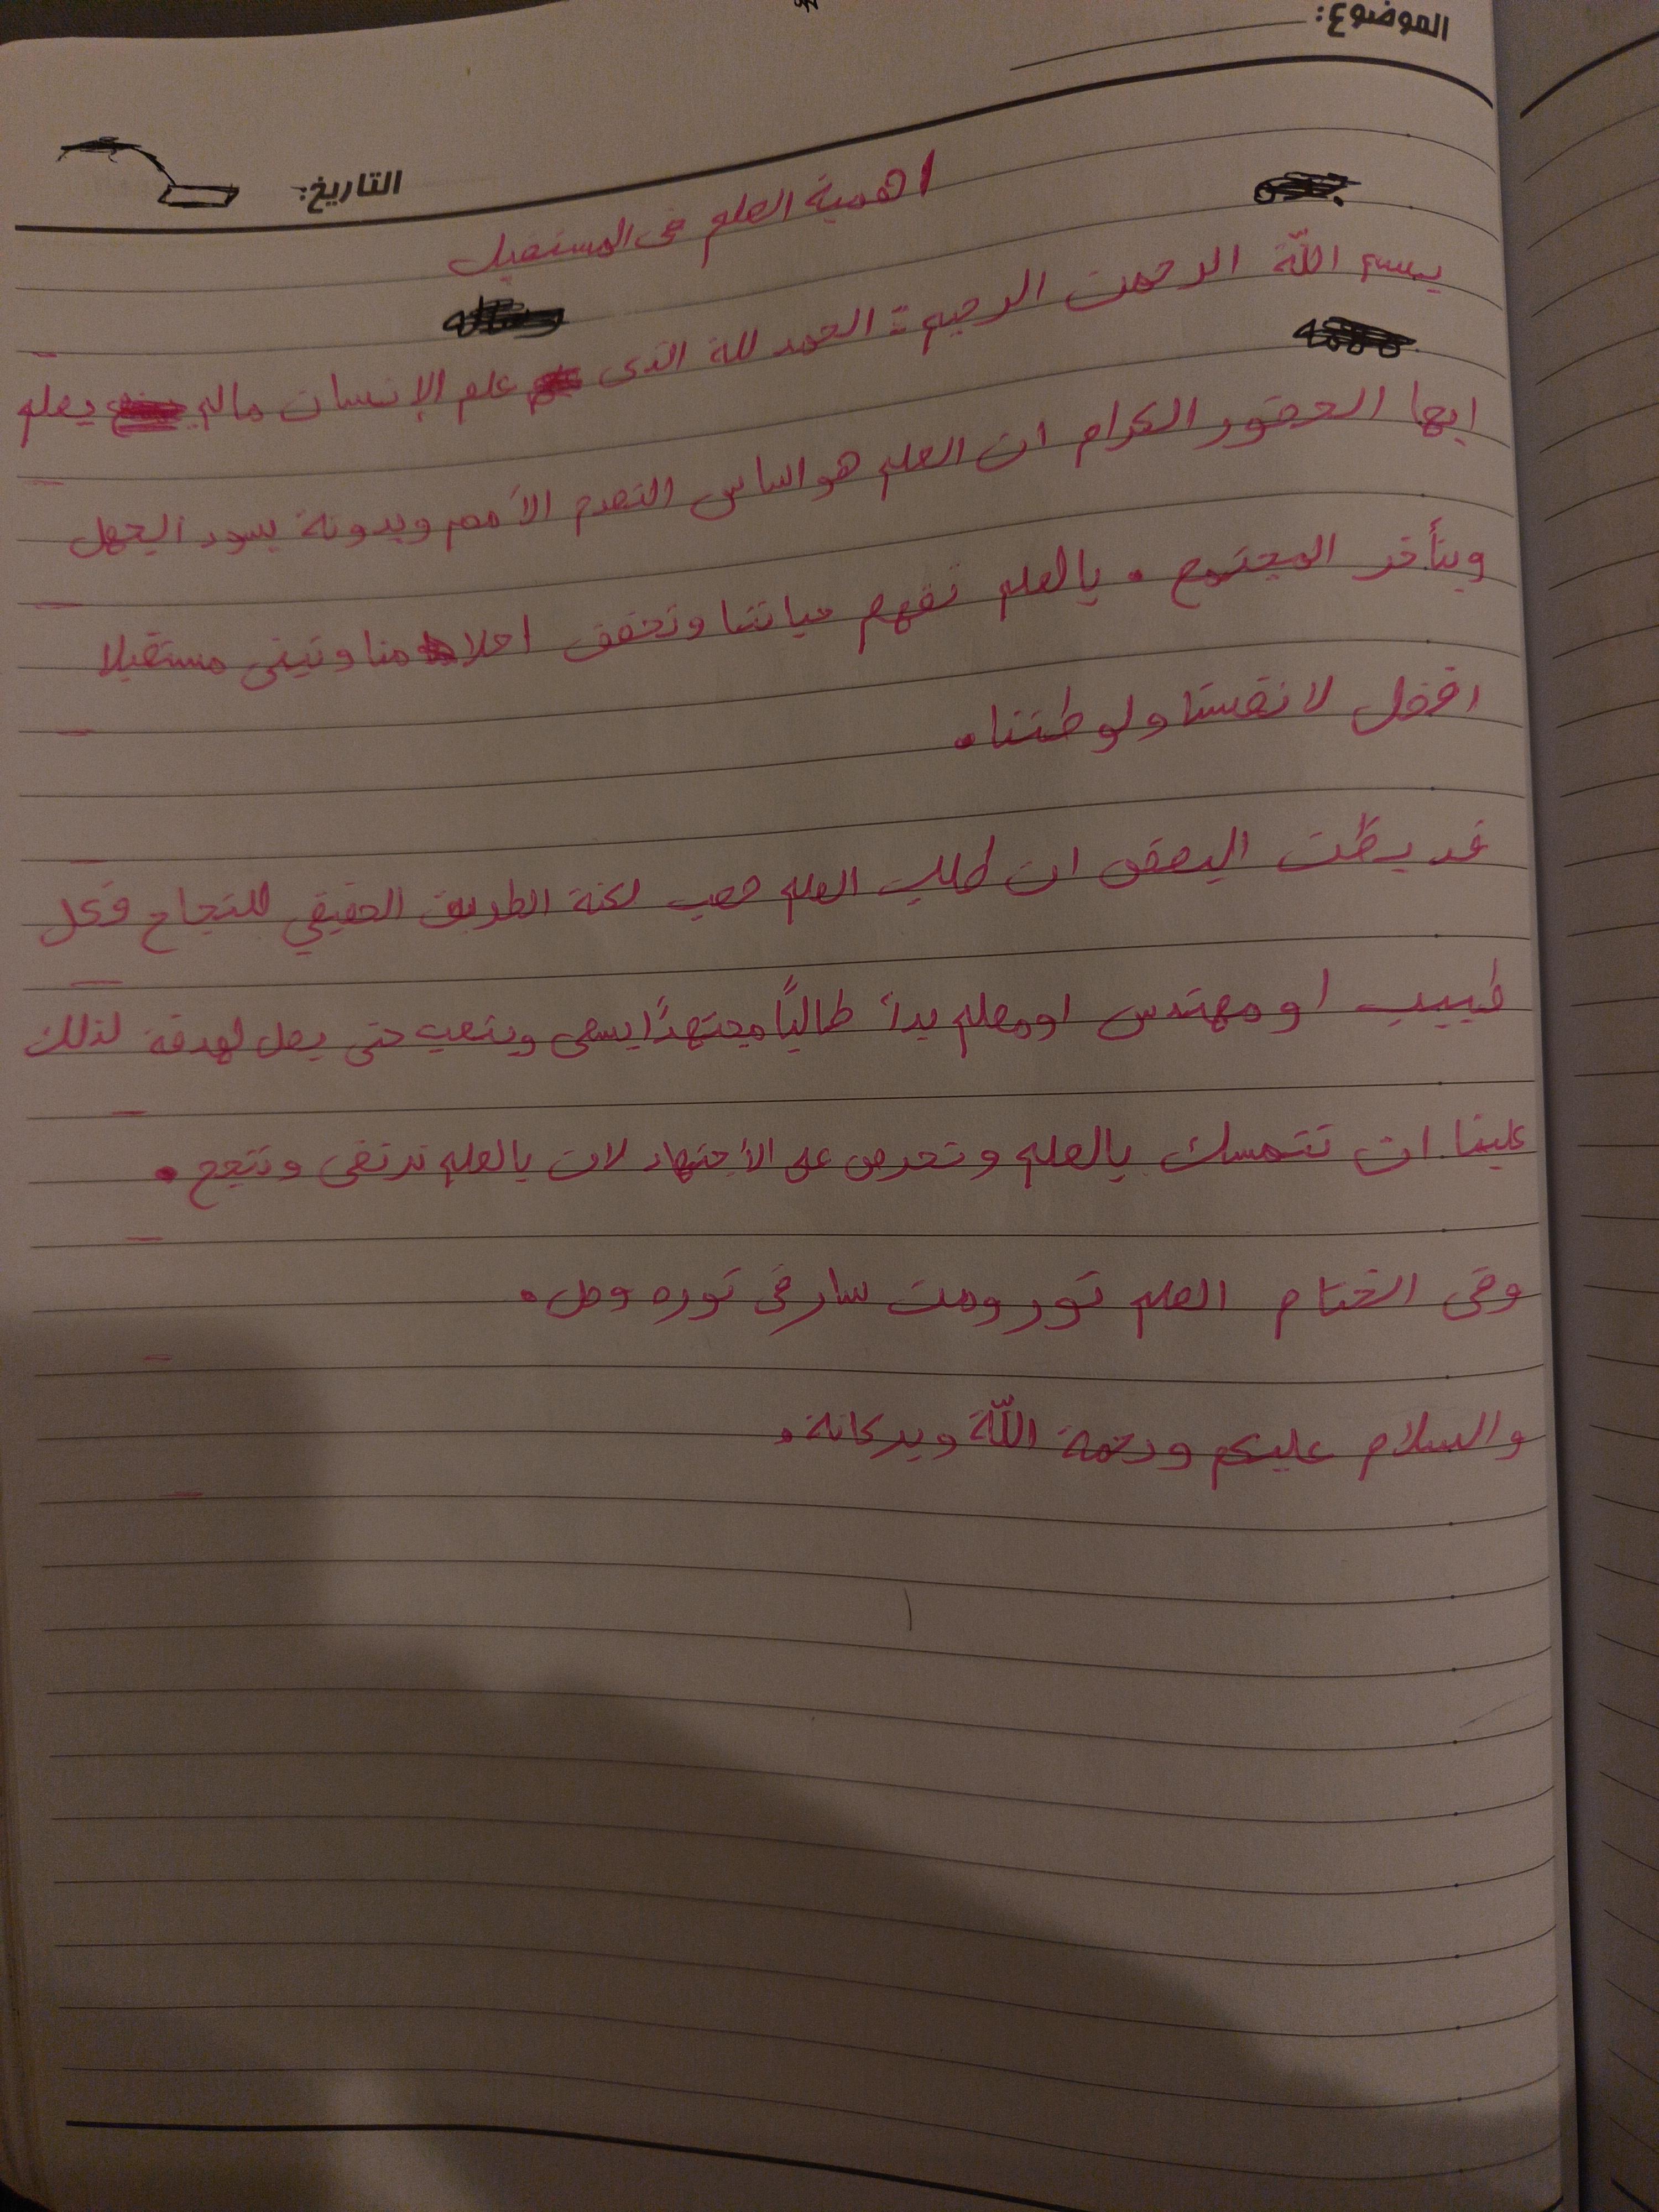 الموضوع:
التاريخ:
اهمية العلم في المستقبل
بسم الله الرحمن الرحيم: الحمد للة الذي علم الإنسان مالم يعلم
ايها الحضور الكرام ان العلم هو اساس التقدم الأمم وبدونة يسود الجهل
ويتأخر المجتمع. بالعلم نفهم حياتنا ونحقق احلامنا ونبني مستقبلا
افضل لانفسنا ولوطننا.
قد يظن البعض ان طلب العلم صعب لكنة الطريق الحقيقي للنجاح فكل
طبيب او مهندس او معلم بدأ طالبًا مجتهدًا يسعى ويتعب حتى يصل لهدفة لذلك
علينا ان نتمسك بالعلم ونحرص على الأجتهاد لان بالعلم نرتقي وننجح.
وفي الختام العلم نور ومن سار في نوره وصل.
والسلام عليكم ورحمة اللّة وبركاتة.